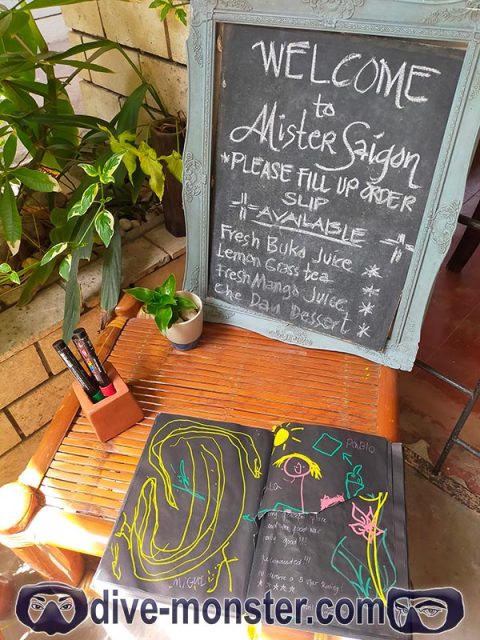 WELCOME
to
Mister Saigon
*PLEASE FILL UP ORDER
SLIP
AVAILABLE
Fresh Buko Juice *
Lemon Grass tea *
Fresh Mango Juice *
Che Dau Dessert *
PABLO
MIGUEL
dive-monster.com